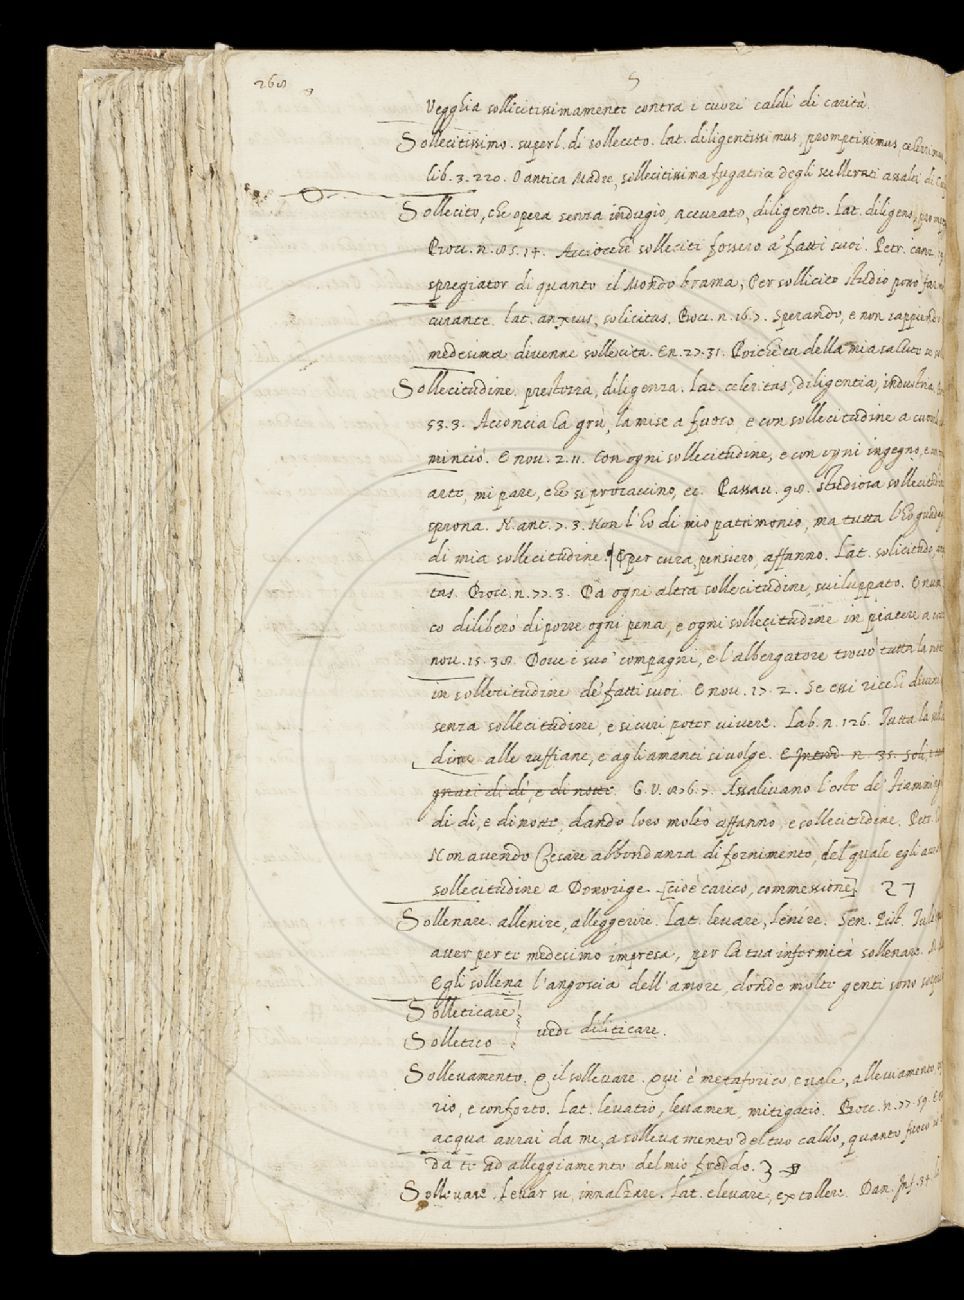 268 S
Vegghia sollicitissimamente contra i cuori caldi di carità.
Sollecitissimo. superl. di solleceto. lat. diligentissimus, promptissimus,
lib. 3. 220. O antica Madre, sollecitissima fugatrice degli scellerati assalti di
Sollecito, che opera senza indugio, accurato, diligente. Lat. diligens,
Bocc. n. 85. 14. Acciocchè solleciti fossero a' fatti suoi. Petr. canz.
spregiator di quanto il Mondo brama, Per sollicito studio
curante. lat. anxius, solicitus. Bocc. n. 16. 7. Sperando, e non sappiendo
medesima divenne sollecita. E n. 27. 31. Poichè tu della mia salute se
Sollecitudine. prestezza, diligenza. Lat. celeritas, diligentia, industria.
53. 3. Acconcia la grù, la mise a fuoco, e con sollecitudine a
minciò. E nov. 2. 11. Con ogni sollecitudine, e con ogni ingegno, e
arte, mi pare, che si procaccino, ec. Passav. 98. studiosa
sprona. N. ant. 7. 3. Non l'ho di mio patrimonio, ma tutta l'ho
di mia sollecitudine. ¶ E per cura, pensiero, affanno. Lat. solicitudo,
tas. Bocc. n. 77. 3. Da ogni altra sollecitudine, sviluppato. E
co dilibero di porre ogni pena, e ogni sollecitudine in piacere a
nov. 15. 38. Dove e suo' compagni, e l'albergatore trovò tutta la
in sollecitudine de' fatti suoi. E nov. 17. 2. Se essi ricchi
senza sollecitudine, e sicuri poter vivere. Lab. n. 126. Tutta la
dine alle ruffiane, e agli amanti si volge. E Introd. n. 35.
gnati di dì, e di notte. G. V. 8. 76. 7. Assalivano l'oste de'
di dì, e di notte, dando loro molto affanno, e sollecitudine. Petr.
Non avendo Cesare abbondanza di fornimento, del quale egli
sollecitudine a Donorige. [cioè carico, commessione] 27
Sollenare. allenire, alleggerire. Lat. levare, lenire. Sen. Pist.
aver per te medesimo impresa, per la tua infermità sollenare.
Egli sollena l'angoscia dell'amore, donde molte genti sono
Solleticare
Solletico vedi diliticare.
Sollevamento. Il sollevare. Qui è metaforico, e vale, alleviamento,
rio, e conforto. Lat. levatio, levamen, mitigatio. Bocc. n. 77. 59.
acqua avrai da me, a sollevamento del tuo caldo, quanto fuoco
da te ad alleggiamento del mio freddo. 3
Sollevare. Levar su, innalzare. Lat. elevare, extollere. Dan. Inf. 34.